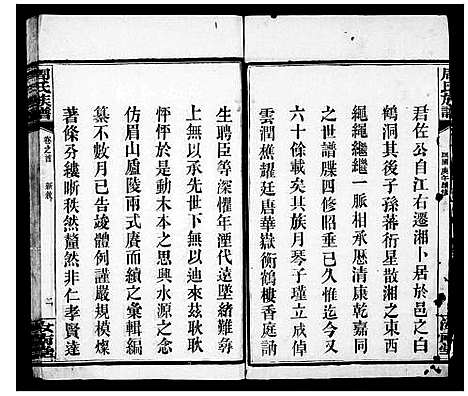 周氏族譜
君佐公自江右遷湘卜居於邑之白
鶴洞其後子孫蕃衍星散湘之東西
繩繩繼繼一脈相承歷清康乾嘉同
之世譜牒四修昭垂已久惟迄今又
六十餘載其族月琴子瑾立成倬
雲潤樵耀廷唐華嶽衡鶴樓香庭訥
生聘臣等深懼年湮代遠墜緒難尋
上無以承先世下無以迪來茲耿耿
怦怦於是動木本之思興水源之念
仿眉山廬陵兩式賡而續之彙輯編
纂不數月已告竣體例謹嚴規模燦
著條分縷晰秩然釐然非仁孝賢達
周氏族譜
卷之首
新敘
二
汝南堂